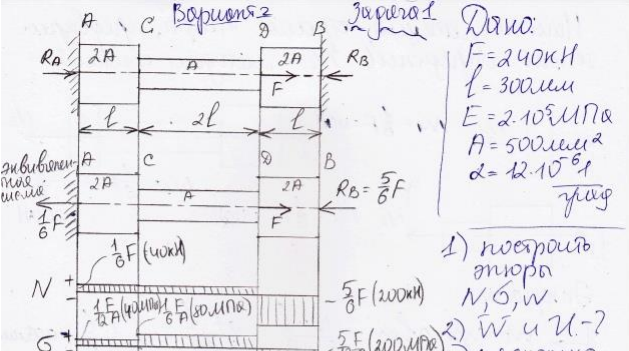 Вариант 2
Задача 1
A C D B
2A A 2A
R_A F R_B
l 2l l
эквивалентная схема
A C D B
2A A 2A
1/6 F F R_B = 5/6 F
1/6 F (40кН)
N + −
− 5/6 F (200кН)
1/12 F/A (40МПа) 1/6 F/A (80МПа)
σ +
Дано:
F = 240кН
l = 300мм
E = 2·10⁵МПа
A = 500мм²
α = 12·10⁻⁶ 1/град
1) построить
эпюры
N, σ, W.
2) W и U. -?